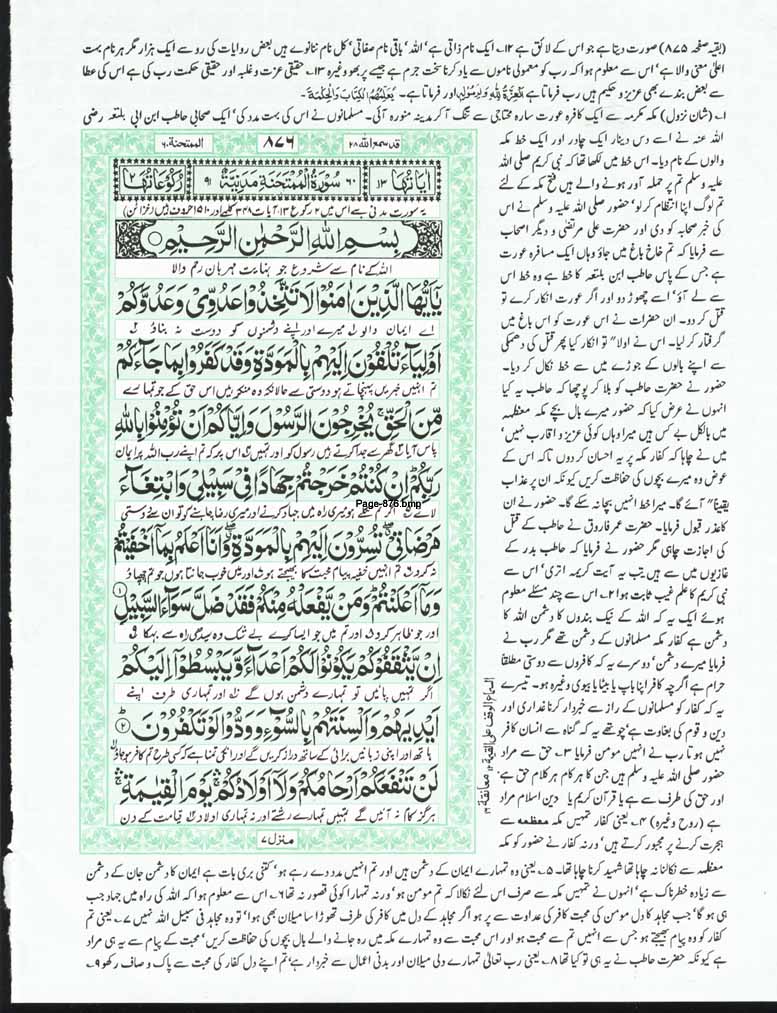 (بقیہ صفحہ ۸۷۵) صورت دیتا ہے جو اس کے لائق ہے ۱۲۔ ایک نام ذاتی ہے' اللہ' باقی نام صفاتی' کل نام ننانوے ہیں بعض روایات کی رو سے ایک ہزار مگر ہر نام بہت
اعلیٰ معنی والا ہے' اس سے معلوم ہوا کہ رب کو معمولی ناموں سے یاد کرنا سخت جرم ہے جیسے پربھو وغیرہ ۱۳۔ حقیقی عزت و غلبہ اور حقیقی حکمت رب کی ہے اس کی عطا
سے بعض بندے بھی عزیز و حکیم ہیں رب فرماتا ہے وَلِلّٰهِ الْعِزَّةُ وَلِرَسُوْلِهٖ اور فرماتا ہے۔ يُعَلِّمُهُمُ الْكِتٰبَ وَالْحِكْمَةَ۔
۱۔ (شان نزول) مکہ مکرمہ سے ایک کافرہ عورت سارہ محتاجی سے تنگ آ کر مدینہ منورہ آئی۔ مسلمانوں نے اس کی بہت مدد کی' ایک صحابی حاطب ابن ابی بلتعہ رضی
اللہ عنہ نے اسے دس دینار ایک چادر اور ایک خط مکہ
والوں کے نام دیا۔ اس خط میں لکھا تھا کہ نبی کریم صلی اللہ
علیہ وسلم تم پر حملہ آور ہونے والے ہیں فتح مکہ کے لئے
تم لوگ اپنا انتظام کر لو' حضور صلی اللہ علیہ وسلم نے اس
کی خبر صحابہ کو دی اور حضرت علی مرتضی و دیگر اصحاب
سے فرمایا کہ تم خاخ باغ میں جاؤ وہاں ایک مسافرہ عورت
ہے جس کے پاس حاطب ابن بلتعہ کا خط ہے وہ خط اس
سے لے آؤ' اسے چھوڑ دو اور اگر عورت انکار کرے تو
قتل کر دو۔ ان حضرات نے اس عورت کو اس باغ میں
گرفتار کر لیا۔ اس نے اولا" تو انکار کیا پھر قتل کی دھمکی
سے اپنے بالوں کے جوڑے میں سے خط نکال کر دیا۔
حضور نے حضرت حاطب کو بلا کر پوچھا کہ حاطب یہ کیا
انہوں نے عرض کیا کہ حضور میرے بال بچے مکہ معظمہ
میں بالکل بے کس ہیں میرا وہاں کوئی عزیز و اقارب نہیں'
میں نے چاہا کہ کفار مکہ پر یہ احسان کر دوں تاکہ اس کے
عوض وہ میرے بچوں کی حفاظت کریں کیونکہ ان پر عذاب
یقینا" آئے گا۔ میرا خط انہیں بچا نہ سکے گا۔ حضور نے ان
کا عذر قبول فرمایا۔ حضرت عمر فاروق نے حاطب کے قتل
کی اجازت چاہی مگر حضور نے فرمایا کہ حاطب بدر کے
غازیوں میں سے ہیں تب یہ آیت کریمہ اتری' اس سے
نبی کریم کا علم غیب ثابت ہوا ۲۔ اس سے چند مسئلے معلوم
ہوئے ایک یہ کہ اللہ کے نیک بندوں کا دشمن اللہ کا
دشمن ہے کفار مکہ مسلمانوں کے دشمن تھے مگر رب نے
فرمایا میرے دشمن' دوسرے یہ کہ کافروں سے دوستی مطلقا
حرام ہے اگرچہ کافر اپنا باپ یا بیٹا یا بیوی وغیرہ ہو۔ تیسرے
یہ کہ کفار کو مسلمانوں کے راز سے خبردار کرنا غداری اور
دین و قوم کی بغاوت ہے' چوتھے یہ کہ گناہ سے انسان کافر
نہیں ہوتا رب نے انہیں مومن فرمایا ۳۔ حق سے مراد
حضور صلی اللہ علیہ وسلم ہیں جن کا ہر کام ہر کلام حق ہے'
اور حق کی طرف سے ہے یا قرآن کریم یا دین اسلام مراد
ہے (روح وغیرہ) ۴۔ یعنی کفار تمہیں مکہ معظمہ سے
ہجرت کرنے پر مجبور کرتے ہیں' ورنہ کفار نے حضور کو مکہ
قد سمع الله ۲۸ ۸۷۶ الممتحنة ۶۰
اٰيَاتُهَا ۱۳ ۶۰ سُوْرَةُ الْمُمْتَحِنَةِ مَدَنِيَّةٌ ۹۱ رُكُوْعَاتُهَا ۲
یہ سورت مدنی ہے اس میں ۲ رکوع ۱۳ آیات ۳۴۸ کلمے اور ۱۵۱۰ حروف ہیں (خزائن)
بِسْمِ اللهِ الرَّحْمٰنِ الرَّحِيْمِ
اللہ کے نام سے شروع جو نہایت مہربان رحم والا
يٰۤاَيُّهَا الَّذِيْنَ اٰمَنُوْا لَا تَتَّخِذُوْا عَدُوِّيْ وَعَدُوَّكُمْ
اے ایمان والو میرے اور اپنے دشمنوں کو دوست نہ بناؤ
اَوْلِيَآءَ تُلْقُوْنَ اِلَيْهِمْ بِالْمَوَدَّةِ وَقَدْ كَفَرُوْا بِمَا جَآءَكُمْ
تم انہیں خبریں پہنچاتے ہو دوستی سے حالانکہ وہ منکر ہیں اس حق کے جو تمہارے
مِّنَ الْحَقِّ ۚ يُخْرِجُوْنَ الرَّسُوْلَ وَاِيَّاكُمْ اَنْ تُؤْمِنُوْا بِاللهِ
پاس آیا گھر سے جدا کرتے ہیں رسول کو اور تمہیں اس پر کہ تم اپنے رب اللہ پر ایمان
رَبِّكُمْ ۭ اِنْ كُنْتُمْ خَرَجْتُمْ جِهَادًا فِيْ سَبِيْلِيْ وَابْتِغَآءَ
لائے اگر تم نکلے ہو میری راہ میں جہاد کرنے اور میری رضا چاہنے کو تو ان سے دوستی
Page-876.bmp
مَرْضَاتِيْ ۖ تُسِرُّوْنَ اِلَيْهِمْ بِالْمَوَدَّةِ ۖ وَاَنَا اَعْلَمُ بِمَاۤ اَخْفَيْتُمْ
نہ کرو تم انہیں خفیہ پیام محبت کا بھیجتے ہو اور میں خوب جانتا ہوں جو تم چھپاؤ
وَمَاۤ اَعْلَنْتُمْ ۭ وَمَنْ يَّفْعَلْهُ مِنْكُمْ فَقَدْ ضَلَّ سَوَآءَ السَّبِيْلِ ۱
اور جو ظاہر کرو اور تم میں جو ایسا کرے بے شک وہ سیدھی راہ سے بہکا
اِنْ يَّثْقَفُوْكُمْ يَكُوْنُوْا لَكُمْ اَعْدَآءً وَّيَبْسُطُوْۤا اِلَيْكُمْ
اگر تمہیں پائیں تو تمہارے دشمن ہوں گے اور تمہاری طرف اپنے
اَيْدِيَهُمْ وَاَلْسِنَتَهُمْ بِالسُّوْٓءِ وَوَدُّوْا لَوْ تَكْفُرُوْنَ ۲
ہاتھ اور اپنی زبانیں برائی کے ساتھ دراز کریں گے اور انکی تمنا ہے کہ کسی طرح تم کافر ہو جاؤ
لَنْ تَنْفَعَكُمْ اَرْحَامُكُمْ وَلَاۤ اَوْلَادُكُمْ ۚ يَوْمَ الْقِيٰمَةِ
ہرگز کام نہ آئیں گے تمہیں تمہارے رشتے اور نہ تمہاری اولاد قیامت کے دن
منزل ۷
معانقة ۱۴
معظمہ سے نکالا نہ چاہا تھا شہید کرنا چاہا تھا۔ ۵۔ یعنی وہ تمہارے ایمان کے دشمن ہیں اور تم انہیں مدد دے رہے ہو' کتنی بری بات ہے ایمان کا دشمن جان کے دشمن
سے زیادہ خطرناک ہے' انہوں نے تمہیں مکہ سے صرف اس لئے نکالا کہ تم مومن ہو' ورنہ تمہارا کوئی قصور نہ تھا ۶۔ اس سے معلوم ہوا کہ اللہ کی راہ میں جہاد جب
ہی ہو گا' جب مجاہد کا دل مومن کی محبت کافر کی عداوت سے پر ہو اگر مجاہد کے دل میں کافر کی طرف تھوڑا سا میلان بھی ہوا' تو وہ مجاہد فی سبیل اللہ نہیں ۷۔ یعنی تم
کفار کو وہ پیام بھیجتے ہو جس سے انہیں تم سے محبت ہو اور اس محبت سے وہ تمہارے مکہ میں رہ جانے والے بال بچوں کی حفاظت کریں' محبت کے پیام سے یہ ہی مراد
ہے کیونکہ حضرت حاطب نے یہ ہی تو کیا تھا ۸۔ یعنی رب تعالیٰ تمہارے ولی میلان اور بدنی اعمال سے خبردار ہے' تم اپنے دل کفار کی محبت سے پاک و صاف رکھو ۹۔